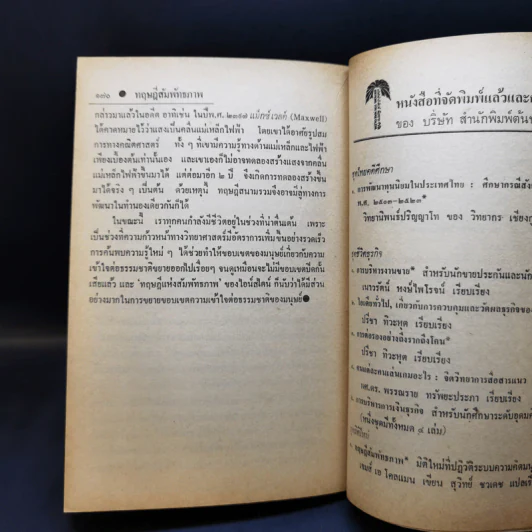 ๑๗๖ ● ทฤษฎีสัมพัทธภาพ
กล่าวมาแล้วในอดีต อาทิเช่น ในปีพ.ศ. ๒๔๑๗ แม็กซ์เวลค์ (Maxwell)
ได้คาดหมายไว้ว่าแสงเป็นคลื่นแม่เหล็กไฟฟ้า โดยเขาได้อาศัยรูปสม
การทางคณิตศาสตร์ ทั้ง ๆ ที่เขามีความรู้ทางด้านแม่เหล็กและไฟฟ้า
เพียงเบื้องต้นเท่านั้นเอง และเขาเองก็ไม่อาจทดลองสร้างแสงจากคลื่น
แม่เหล็กไฟฟ้าขึ้นมาได้ แต่ต่อมาอีก ๒ ปี จึงเกิดการทดลองสร้างขึ้น
มาได้จริง ๆ เป็นต้น ด้วยเหตุนี้ ทฤษฎีสนามรวมจึงอาจมีลู่ทางการ
พัฒนาในทำนองเดียวกันก็ได้
ในขณะนี้ เราทุกคนกำลังมีชีวิตอยู่ในช่วงที่น่าตื่นเต้น เพราะ
เป็นช่วงที่ความก้าวหน้าทางวิทยาศาสตร์มีอัตราการเพิ่มขึ้นอย่างรวดเร็ว
การค้นพบความรู้ใหม่ ๆ ได้ช่วยทำให้ขอบเขตของมนุษย์เกี่ยวกับความ
เข้าใจต่อธรรมชาติขยายออกไปเรื่อยๆ จนดูเหมือนจะไม่มีขอบเขตปิดกั้น
เสียแล้ว และ 'ทฤษฎีแห่งสัมพัทธภาพ' ของไอน์สไตน์ ก็นับว่าได้มีส่วน
อย่างมากในการขยายขอบเขตความเข้าใจต่อธรรมชาติของมนุษย์●
หนังสือที่จัดพิมพ์แล้วและ
ของ บริษัท สำนักพิมพ์ต้น
ชุดไทยคดีศึกษา
๑. การพัฒนาทุนนิยมในประเทศไทย : ศึกษากรณีสิ่ง
พ.ศ. ๒๕๐๓-๒๕๒๓*
วิทยานิพนธ์ปริญญาโท ของ วิทยากร เชียงกู
ชุดชีวิตธุรกิจ
๑. การบริหารงานขาย* สำหรับนักขายประกันและนัก
เนาวรัตน์ หงษ์ไพโรจน์ เรียบเรียง
เกี่ยวกับการควบคุมและวัดผลธุรกิจของ
ปรีชา ทิวะหุต เรียบเรียง
๓. การต่อรองอย่างรู้เราถึงโคน*
ปรีชา ทิวะหุต เรียบเรียง
จิตวิทยาการสื่อสารแนว
ผศ.ดร. พรรณราย ทรัพยะประภา เรียบเรียง
๕. การบริหารการเงินธุรกิจ สำหรับนักศึกษาระดับอุดม
(หนึ่งชุดมีทั้งหมด ๔ เล่ม)
ทฤษฎีสัมพัทธภาพ* มิติใหม่ที่ปฏิวัติระบบความคิดมนุ
เจมส์ เอ โคลแมน เขียน สุวิทย์ ชวเดช แปล